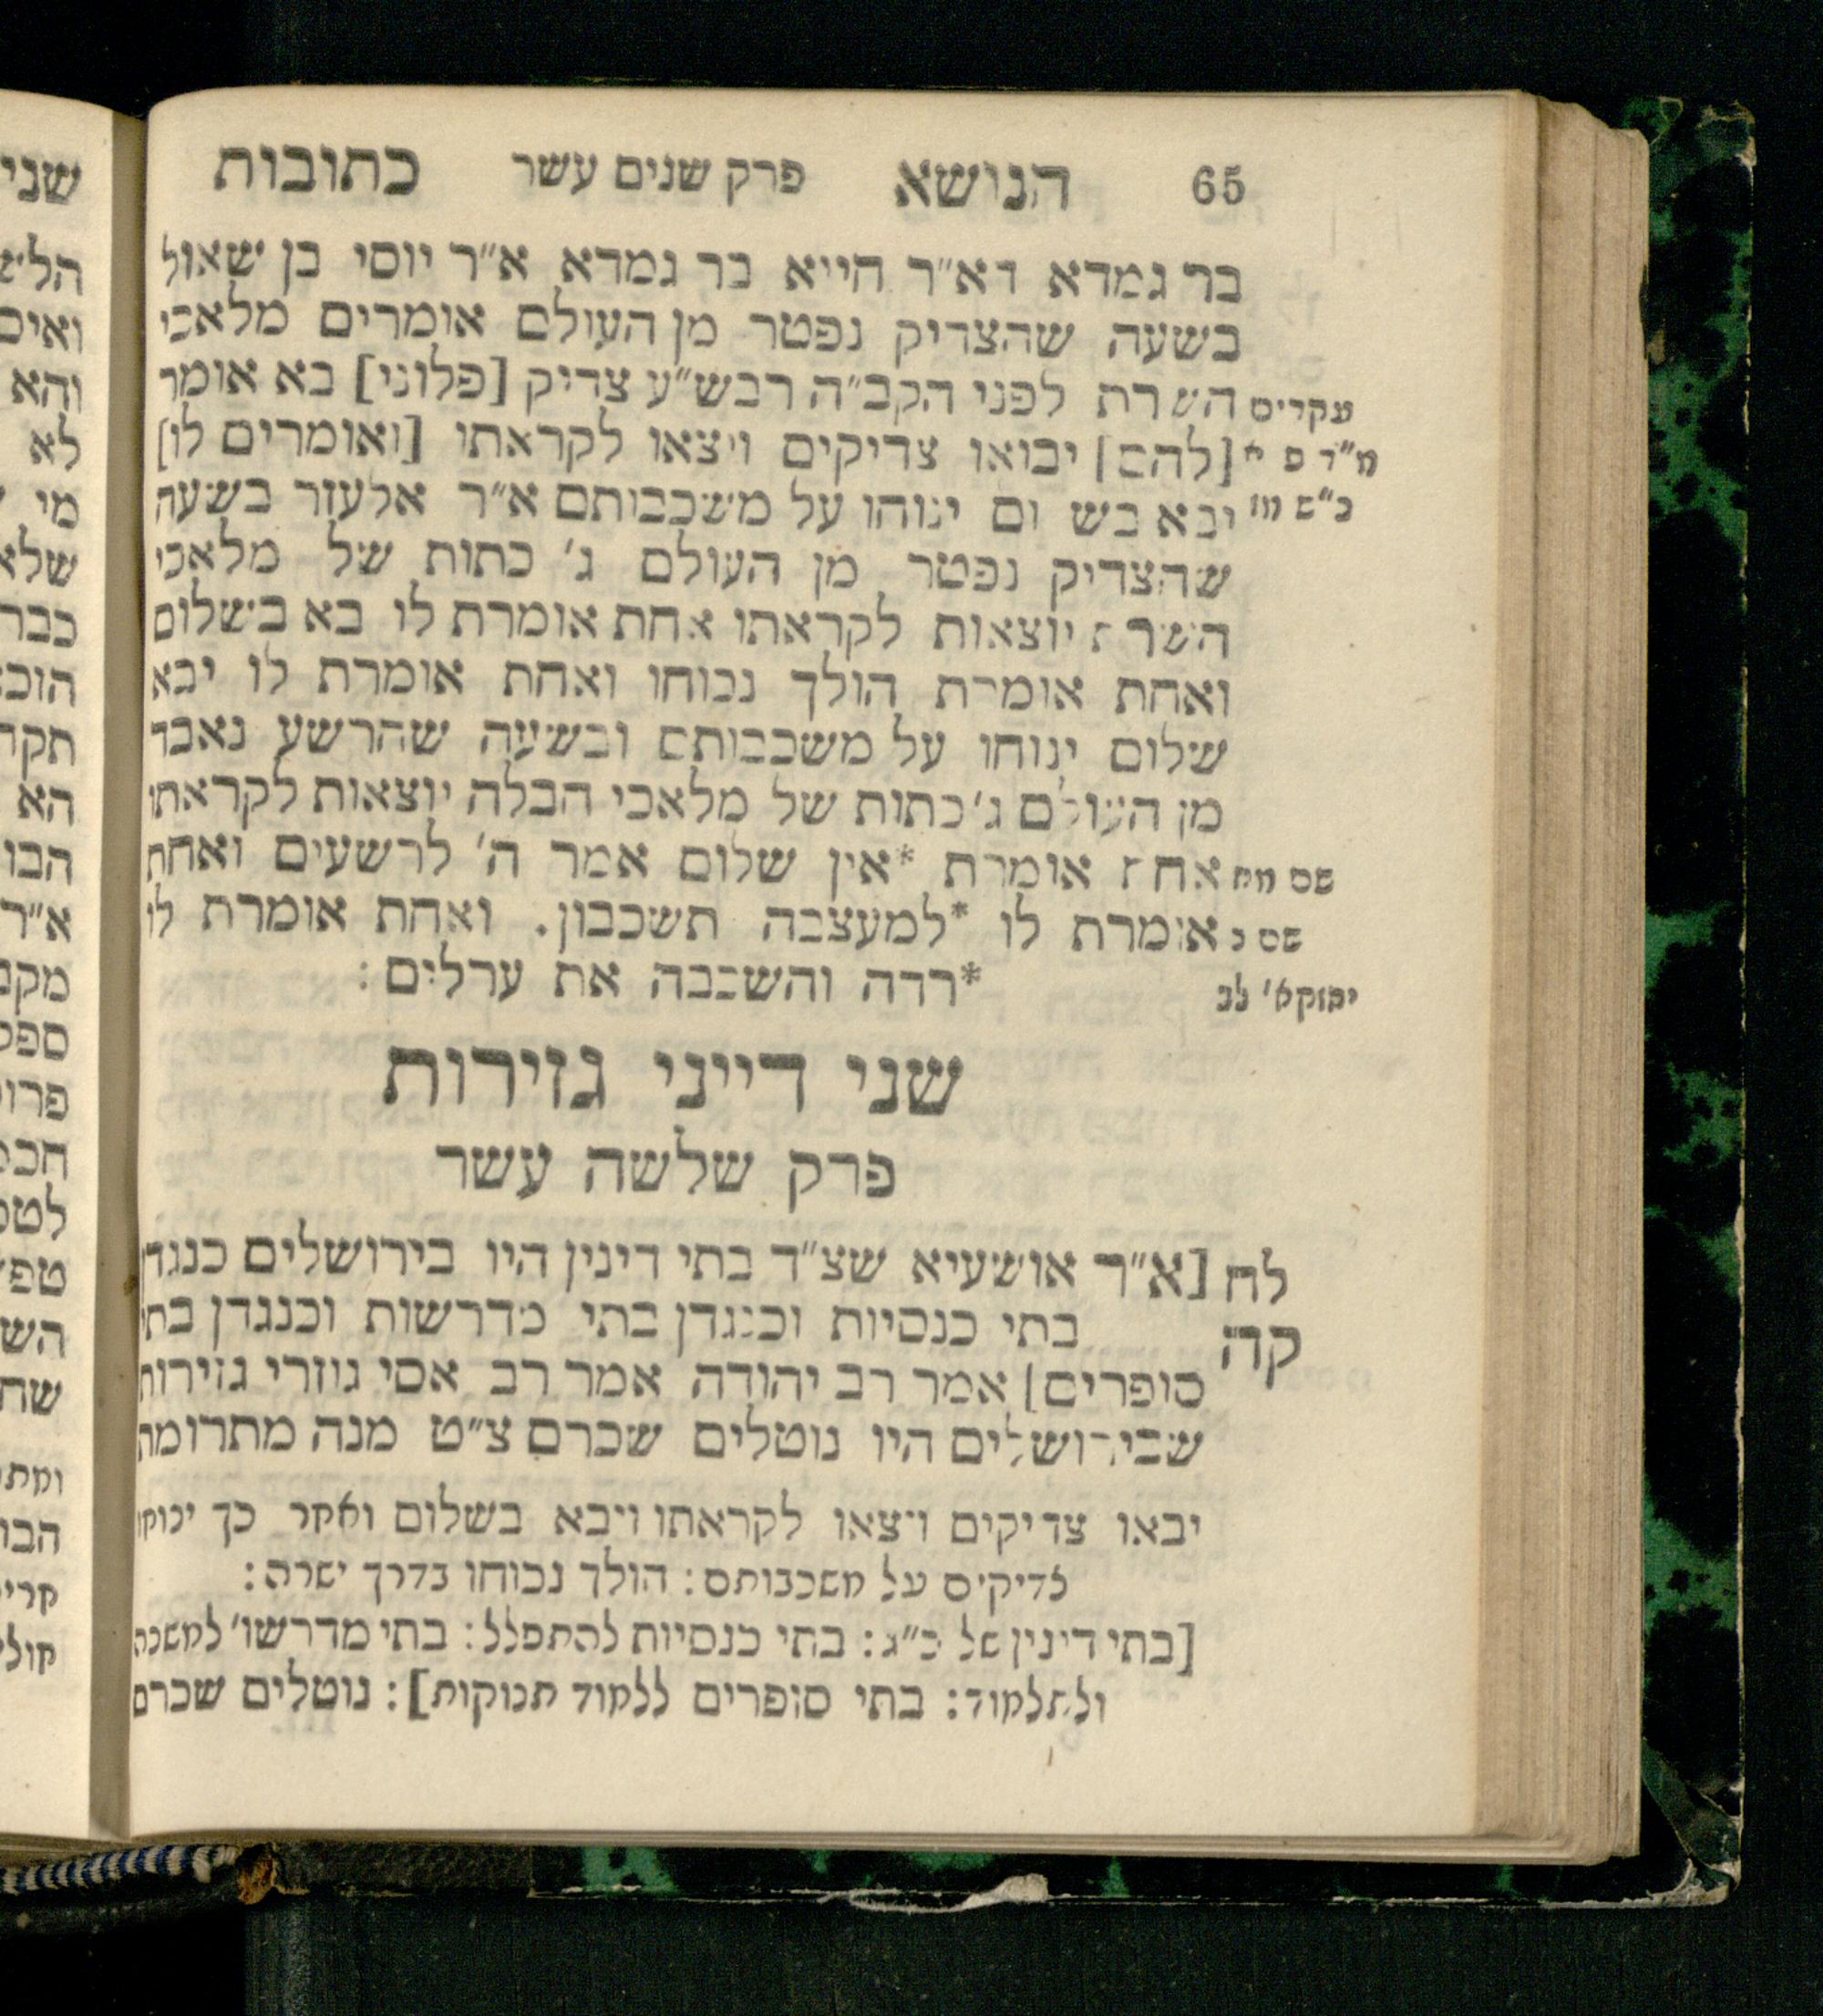 65 הנושא פרק שנים עשר כתובות
בר גמדא דא״ר חייא בר גמדא א״ר יוסי בן שאול
בשעה שהצדיק נפטר מן העולם אומרים מלאכי
עקרי׳ס השרת לפני הקב״ה רבש״ע צדיק [פלוני] בא אומר
[להם] יבואו צדיקים ויצאו לקראתו [ואומרים לו]
יבא בש ום ינוחו על משכבותם א״ר אלעזר בשעה
שהצדיק נפטר מן העולם ג׳ כתות של מלאכי
השרת יוצאות לקראתו אחת אומרת לו בא בשלום
ואחת אומרת הולך נכוחו ואחת אומרת לו יבא
שלום ינוחו על משכבותם ובשעה שהרשע נאבד
מן העולם ג׳ כתות של מלאכי חבלה יוצאות לקראתו
שם מח אחת אומרת *אין שלום אמר ה׳ לרשעים ואחת
שם נ אומרת לו *למעצבה תשכבון. ואחת אומרת לו
יחזקא׳ לב *רדה והשכבה את ערלים:
שני דייני גזירות
פרק שלשה עשר
לח [א״ר אושעיא שצ״ד בתי דינין היו בירושלים כנגדן
קה בתי כנסיות וכנגדן בתי מדרשות וכנגדן בתי
סופרים] אמר רב יהודה אמר רב אסי גוזרי גזירות
שבירושלים היו נוטלים שכרם צ״ט מנה מתרומת
יבאו צדיקים ויצאו לקראתו ויבא בשלום ואחר כך ינוחו
צדיקים על משכבותם: הולך נכוחו בדרך ישרה:
[בתי דינין של כ״ג: בתי כנסיות להתפלל: בתי מדרשו׳ למשנה
ולתלמוד: בתי סופרים ללמוד תנוקות]: נוטלים שכרם